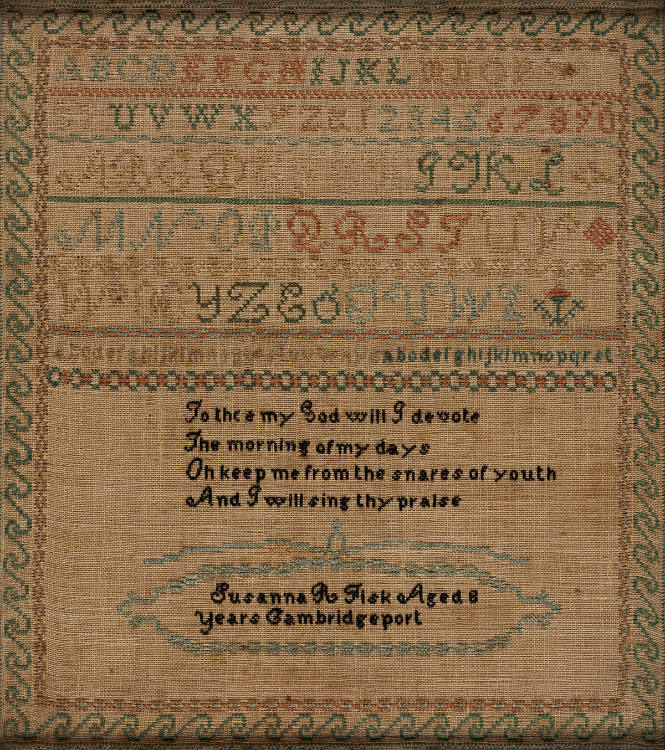 ABCDEFGHIJKL MNOP
UVWXYZ&1234567890
ABCD GIJKL
MNOPQRSTUV
W YZ&
abcdefghijklmnopqrst
To thee my God will I devote
The morning of my days
Oh keep me from the snares of youth
And I will sing thy praise
Susanna R Fisk Aged 8
years Cambridgeport